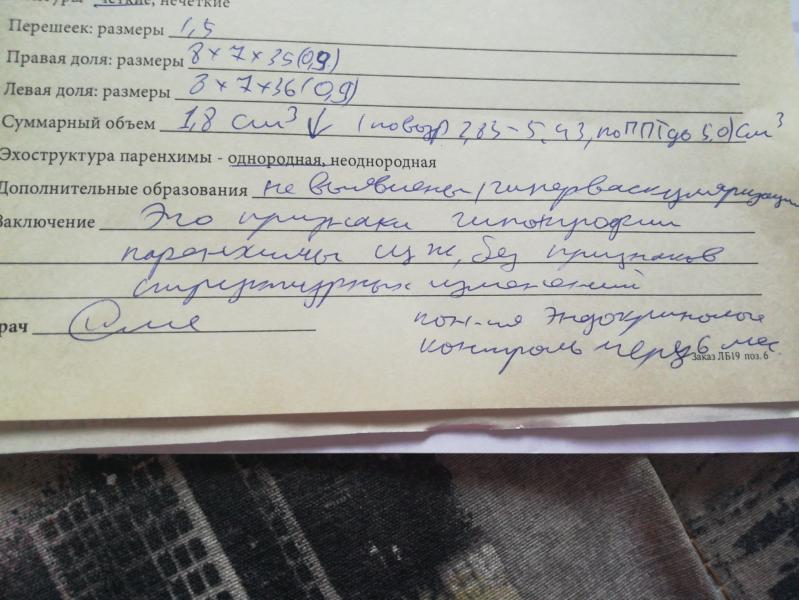 четкие, нечеткие
Перешеек: размеры 1,5
Правая доля: размеры 8×7×35(0,9)
Левая доля: размеры 8×7×36(0,9)
Суммарный объем 1,8 см³ ↓ (по возр 2,83-5,43, по ППТ до 5,0) см³
Эхоструктура паренхимы - однородная, неоднородная
Дополнительные образования не выявлены, гиперваскуляризации
Заключение Эхо признаки гипотрофии
паренхимы щ ж, без признаков
структурных изменений
рач
конс-ия эндокринолога
контроль через 6 мес.
Заказ ЛБ19 поз. 6